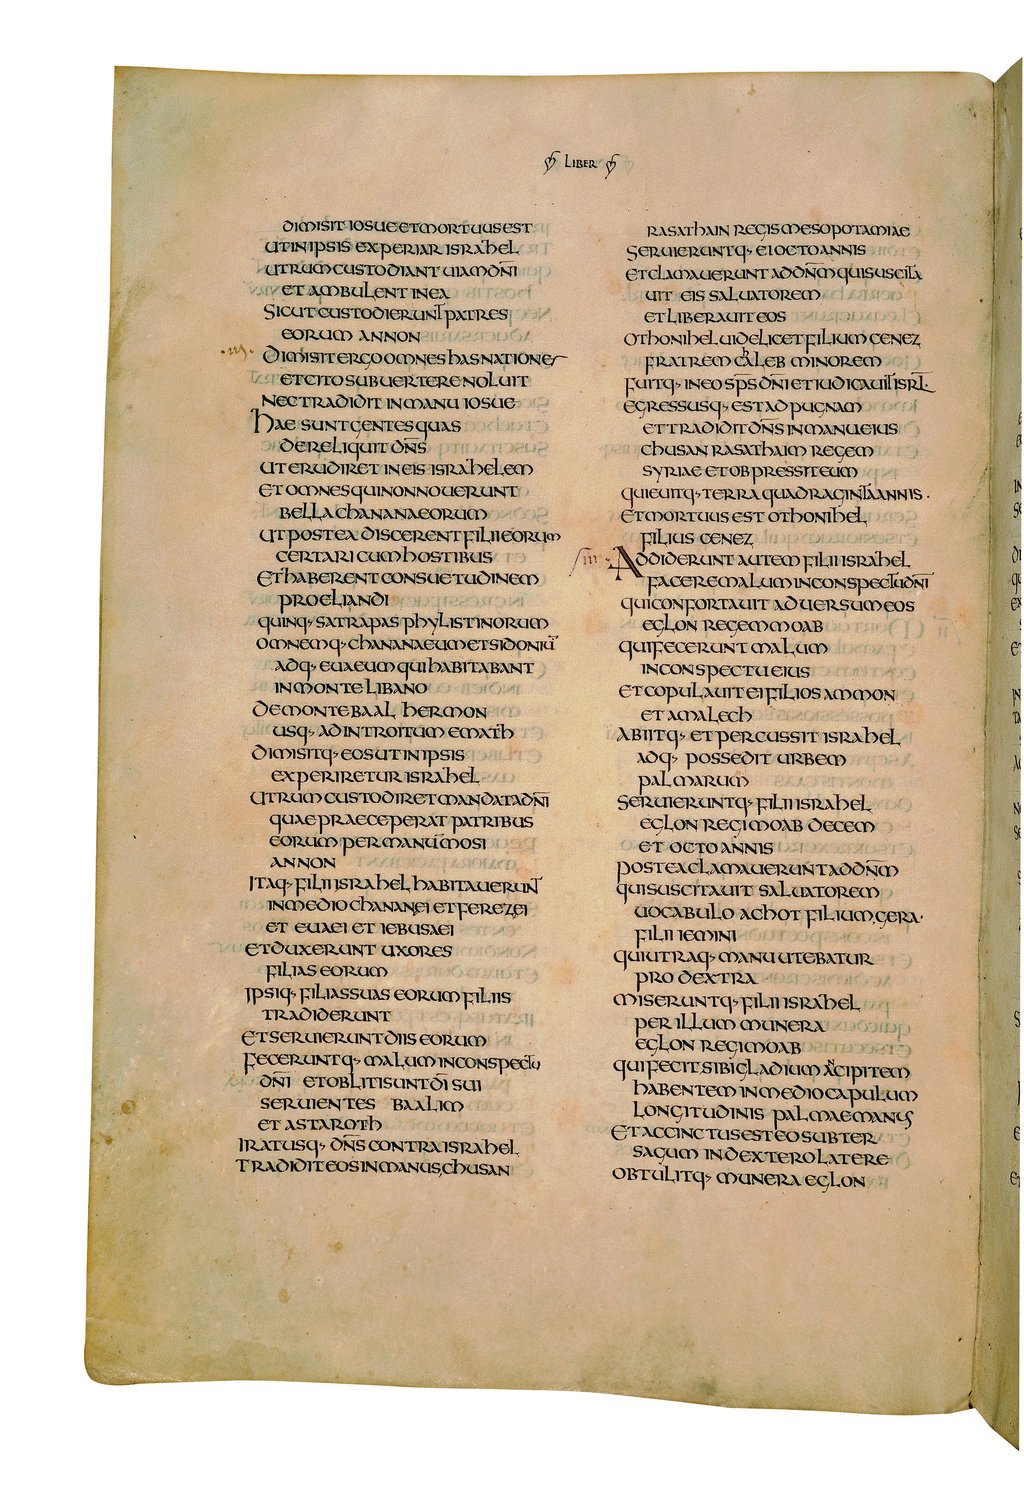 LIBER
DIMISIT IOSUE ET MORTUUS EST
UT IN IPSIS EXPERIAR ISRAHEL
UTRUM CUSTODIANT UIAM DN̄I
ET AMBULENT IN EA
SICUT CUSTODIERUNT PATRES
EORUM AN NON
·III· DIMISIT ERGO OMNES HAS NATIONES
ET CITO SUBUERTERE NOLUIT
NEC TRADIDIT IN MANU IOSUE
HAE SUNT GENTES QUAS
DERELIQUIT DN̄S
UT ERUDIRET IN EIS ISRAHELEM
ET OMNES QUI NON NOUERUNT
BELLA CHANANAEORUM
UT POSTEA DISCERENT FILII EORUM
CERTARI CUM HOSTIBUS
ET HABERENT CONSUETUDINEM
PROELIANDI
QUINQ· SATRAPAS PHYLISTINORUM
OMNEMQ· CHANANAEUM ET SIDONIŪ
ADQ· EUAEUM QUI HABITABANT
IN MONTE LIBANO
DE MONTE BAAL HERMON
USQ· AD INTROITUM EMATH
DIMISITQ· EOS UT IN IPSIS
EXPERIRETUR ISRAHEL
UTRUM CUSTODIRET MANDATA DN̄I
QUAE PRAECEPERAT PATRIBUS
EORUM PER MANŪ MOSI
AN NON
ITAQ· FILII ISRAHEL HABITAUERUNT
IN MEDIO CHANANEI ET FEREZEI
ET EUAEI ET IEBUSAEI
ET DUXERUNT UXORES
FILIAS EORUM
IPSIQ· FILIAS SUAS EORUM FILIIS
TRADIDERUNT
ET SERUIERUNT DIIS EORUM
FECERUNTQ· MALUM IN CONSPECTU
DN̄I ET OBLITI SUNT DĪ SUI
SERUIENTES BAALIM
ET ASTAROTH
IRATUSQ· DN̄S CONTRA ISRAHEL
TRADIDIT EOS IN MANUS CHUSAN
RASATHAIN REGIS MESOPOTAMIAE
SERUIERUNTQ· EI OCTO ANNIS
ET CLAMAUERUNT AD DN̄M QUI SUSCITA
UIT EIS SALUATOREM
ET LIBERAUIT EOS
OTHONIHEL UIDELICET FILIUM CENEZ
FRATREM CHALEB MINOREM
FUITQ· IN EO SP̄S DN̄I ET IUDICAUIT ISRL̄·
EGRESSUSQ· EST AD PUGNAM
ET TRADIDIT DN̄S IN MANU EIUS
CHUSAN RASATHAIM REGEM
SYRIAE ET OBPRESSIT EUM
QUIEUITQ· TERRA QUADRAGINTA ANNIS·
ET MORTUUS EST OTHONIHEL
FILIUS CENEZ
IIII· ADDIDERUNT AUTEM FILII ISRAHEL
FACERE MALUM IN CONSPECTU DN̄I
QUI CONFORTAUIT ADUERSUM EOS
EGLON REGEM MOAB
QUI FECERUNT MALUM
IN CONSPECTU EIUS
ET COPULAUIT EI FILIOS AMMON
ET AMALECH
ABIITQ· ET PERCUSSIT ISRAHEL
ADQ· POSSEDIT URBEM
PALMARUM
SERUIERUNTQ· FILII ISRAHEL
EGLON REGI MOAB DECEM
ET OCTO ANNIS
POSTEA CLAMAUERUNT AD DN̄M
QUI SUSCITAUIT SALUATOREM
UOCABULO AOHOT FILIUM GERA·
FILII IEMINI
QUI UTRAQ· MANU UTEBATUR
PRO DEXTRA
MISERUNTQ· FILII ISRAHEL
PER ILLUM MUNERA
EGLON REGI MOAB
QUI FECIT SIBI GLADIUM ANCIPITEM
HABENTEM IN MEDIO CAPULUM
LONGITUDINIS PALMAE MANUS
ET ACCINCTUS EST EO SUBTER
SAGUM IN DEXTERO LATERE
OBTULITQ· MUNERA EGLON